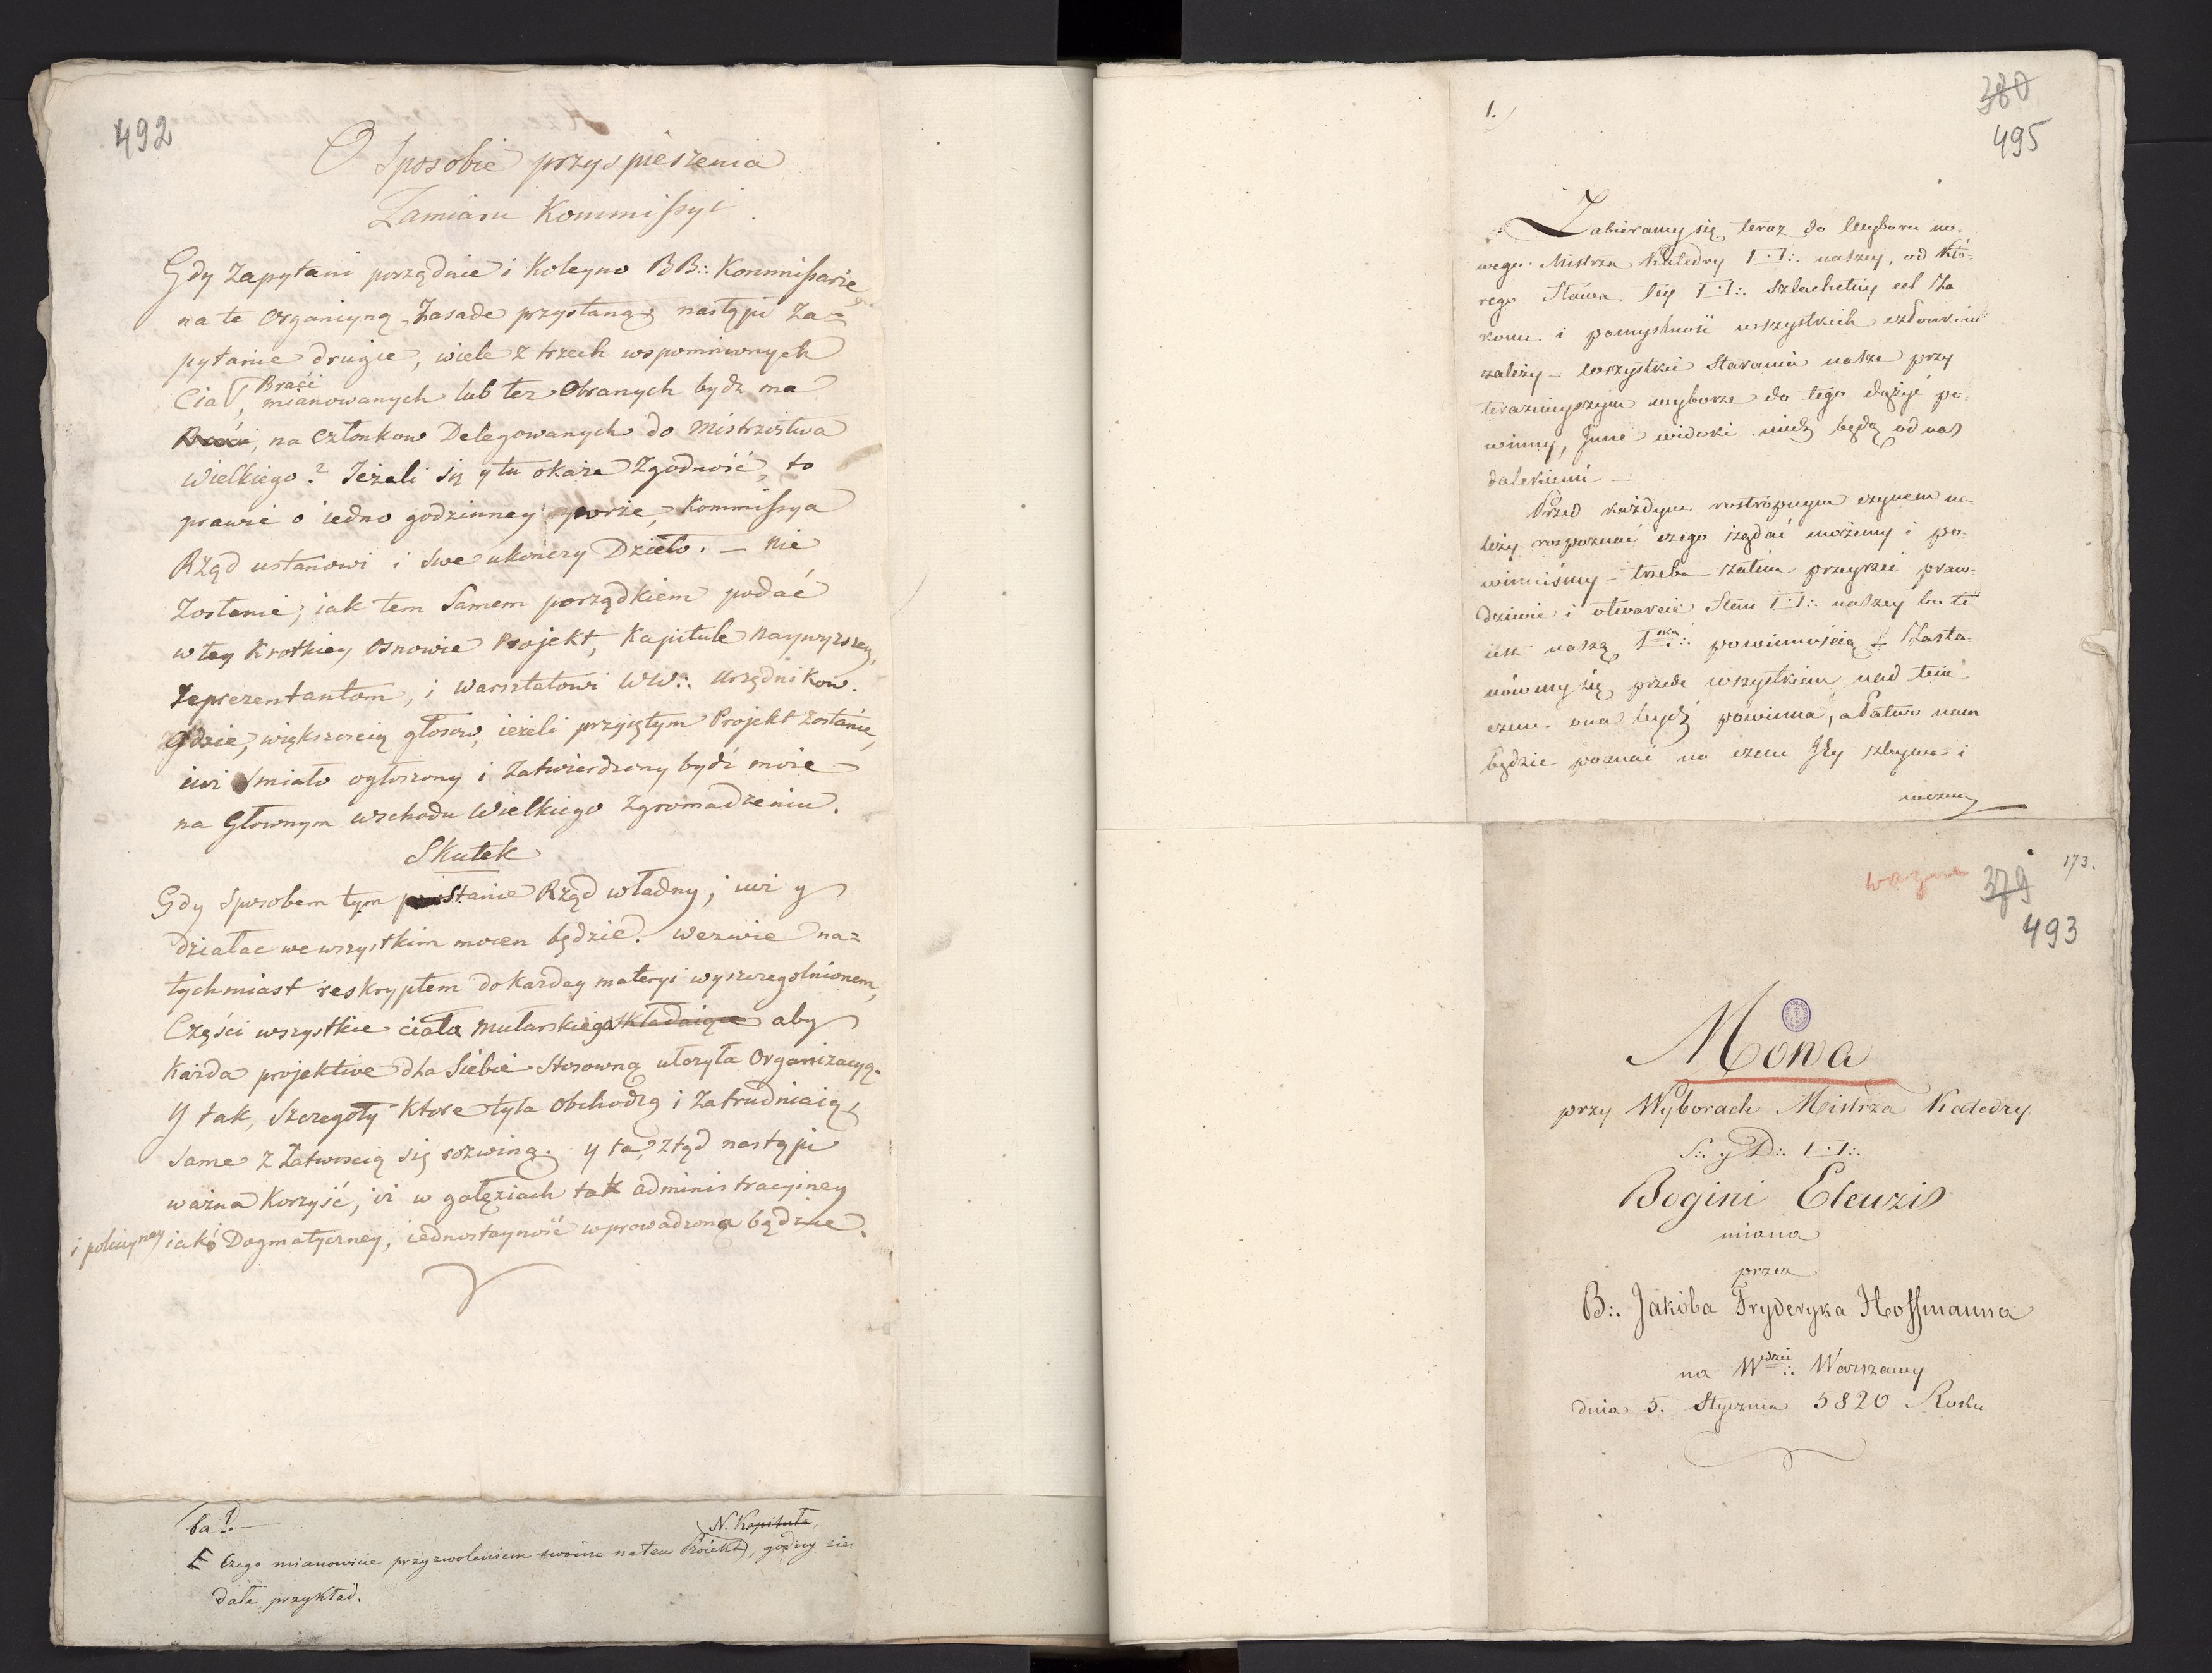 492
O Sposobie przyspieszenia
Zamiaru Kommissyi
Gdy Zapytani porządnie i Koleyno BB:. Kommissarze
na te Organiyną Zasade przystaną; nastąpi Za=
pytanie drugie, wiele z trzech wspomnionych
Ciał, Braci mianowanych lub tez Obranych bydz ma
Braci, na Członkow Delegowanych do Mistrzostwa
Wielkiego? Jeżeli się y tu okaże Zgodność, to
prawie o iedno godzinney porże, Kommissya
Rząd ustanowi i swe ukończy Dzieło. — Nie
Zostanie; iak tem Samem porządkiem podać
w tey Krotkiey Osnowie Projekt, Kapitule Naywyzszey,
Reprezentantom, i Warsztatowi WW:. Urzędnikow.
Gdzie, większoscią głosow, ieżeli przyiętym Projekt zostanie,
iuż Smiało ogłoszony i Zatwierdzony bydź może
na Głownym wschodu Wielkiego Zgromadzeniu.
Skutek
Gdy Sposobem tym stanie Rząd władny; iuż y
działac we wszystkim mocen będzie. Wezwie na=
tychmiast reskryptem do Kazdey materyi wyszczegolnionem,
Części wszystkie ciała Mularskiego składaiące aby
Kazda projektive dla Siebie Stosowną ułozyła Organizacyą.
Y tak, Szczegoły Ktore tyla Obchodzą i Zatrudniaią,
Same z Łatwoscią się rozwiną. y ta, ztąd nastąpi
wazna Korzyść, iż w gałęziach tak administracyiney
i policyiney iako Dogmatyczney, iednostayność wprowadzona będzie.
ba!. —
N. Kapituła,
E Czego mianowicie przyzwoleniem swoim na ten Proiekt, godny sie:
dała przykład.
1.
380
495
Zabieramy się teraz do Wyboru no
wego Mistrza Katedry naszey, od Któ=
rego Sława tey szlachetny cel Za
konu i pomyślność wszystkich członków
zależy — Wszystkie Starania nasze przy
teraznieyszym wyborze do tego dążyć po=
winny, Jnne widoki niech będą od nas
dalekiemi —
Przed każdym rostropnym czynem na=
leży rozpoznać czego żądać możemy i po=
winniśmy — trzeba zatem przeyrzeć praw=
dziwie i otwarcie Stan naszey bo to
iest naszą powinnością Zasta=
nówmy się przede wszystkiem nad tem
czem ona bydź powinna, a łatwo nam
będzie poznać na czem Jey zbywa i
ważne
379
173.
493
Mowa
przy Wyborach Mistrza Katedry
S:. y D:.
Bogini Eleuzis
miana
przez
B:. Jakóba Fryderyka Hoffmanna
na Wdzie:. Warszawy
dnia 5. Stycznia 5820 Roku